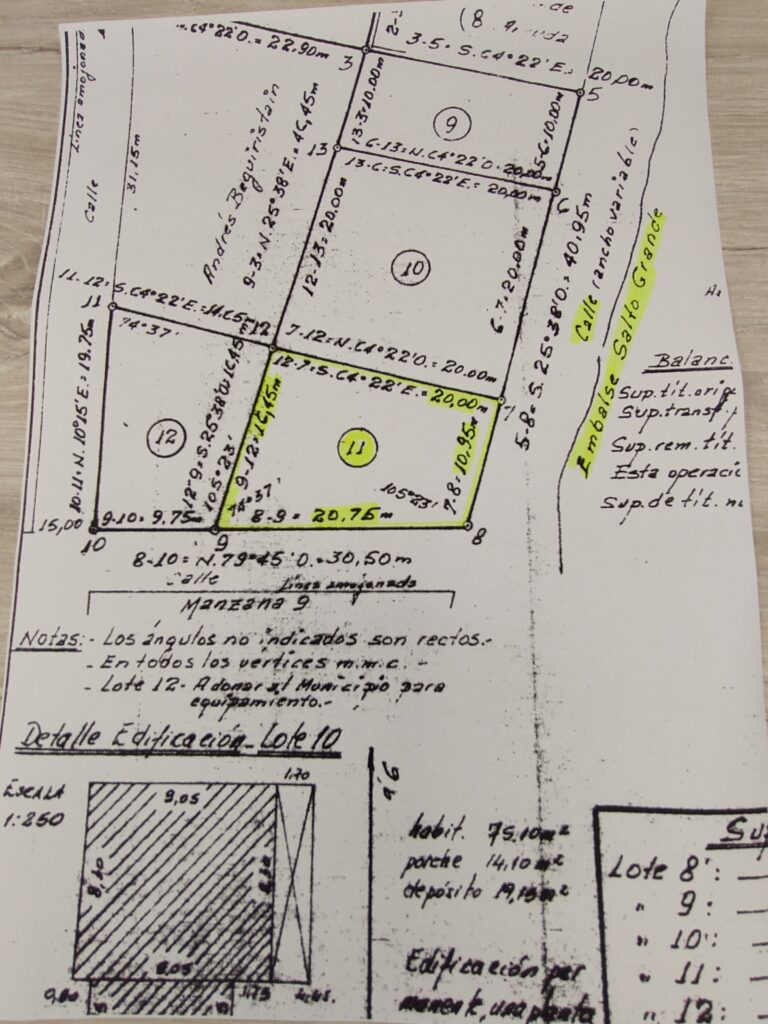 de
2-3
(8
C4°22'O.= 22,90m
3-5= S.C4°22'E.= 20,00m
3
5
Línea amojonada
Calle
31.15m
Andrés Beguiristain
9-3= N.25°38'E.= 4C,45m
13-3=10.00m
9
5-6=10,00m
6-13=N.C4°22'O.=20,00m
13
13-C=S.C4°22'E.= 20,00m
6
12-13=20.00m
10
6-7=20.00m
5-8=S.25°38'O.=40.95m
Calle (ancho variable)
Embalse Salto Grande
11-12=S.C4°22'E.=14.C5m
11
74°37'
12
7-12=N.C4°22'O.= 20.00m
12-7=S.C4°22'E.= 20,00m
7
Balanc
Sup.tít.orig
Sup.transf.
Sup.rem.tít.
Esta operació
Sup.de tít. no
10-11=N.10°15'E.=19.75m
12
12-9=S.25°38'O=1C,45m
105°23'
9-12=1C,45m
11
7-8=10,95m
74°37'
105°23'
15,00
9-10= 9,75m
8-9= 20,75m
10
9
8
8-10= N.79°45'O.=30,50m
Calle
Línea amojonada
Manzana 9
Notas:- Los ángulos no indicados son rectos.-
- En todos los vértices m.m.c.-
- Lote 12- A donar al Municipio para
equipamiento.-
Detalle Edificación_Lote 10
ESCALA
1:250
9,05
1,70
8,30
8,30
9,05
0,80
1,75
habit. 75.10m²
porche 14,10m²
depósito 19,15m²
Edificación per
manente, una planta
Sup
Lote 8':
" 9:
" 10':
" 11:
" 12: